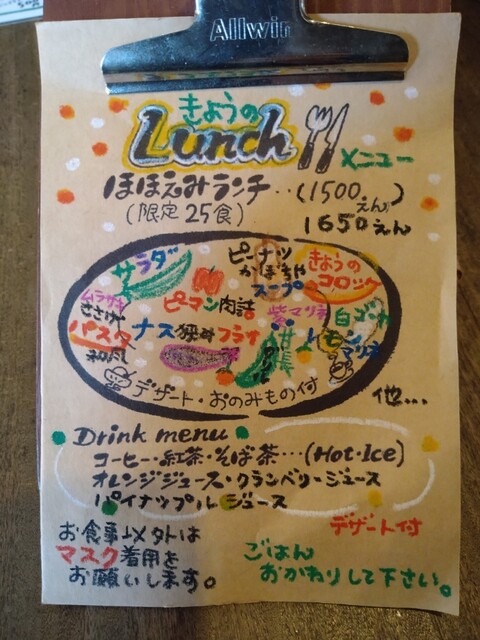 Allwin
きょうの
Lunch
メニュー
ほほえみランチ‥(1500えん)
(限定25食)
1650えん
サラダ
ピーナツ
かぼちゃ
スープ
きょうの
コロッケ
ムラサキ
ささげ
ピーマン肉詰
紫マリネ
白ゴーヤ
パスタ
ナス挟みフライ
レモン
マリネ
デザート・おのみもの付
他…
Drink menu
コーヒー・紅茶・そば茶…(Hot・Ice)
オレンジジュース・クランベリージュース
パイナップルジュース
お食事以外は
デザート付
マスク着用を
ごはん
お願いします。
おかわりして下さい。